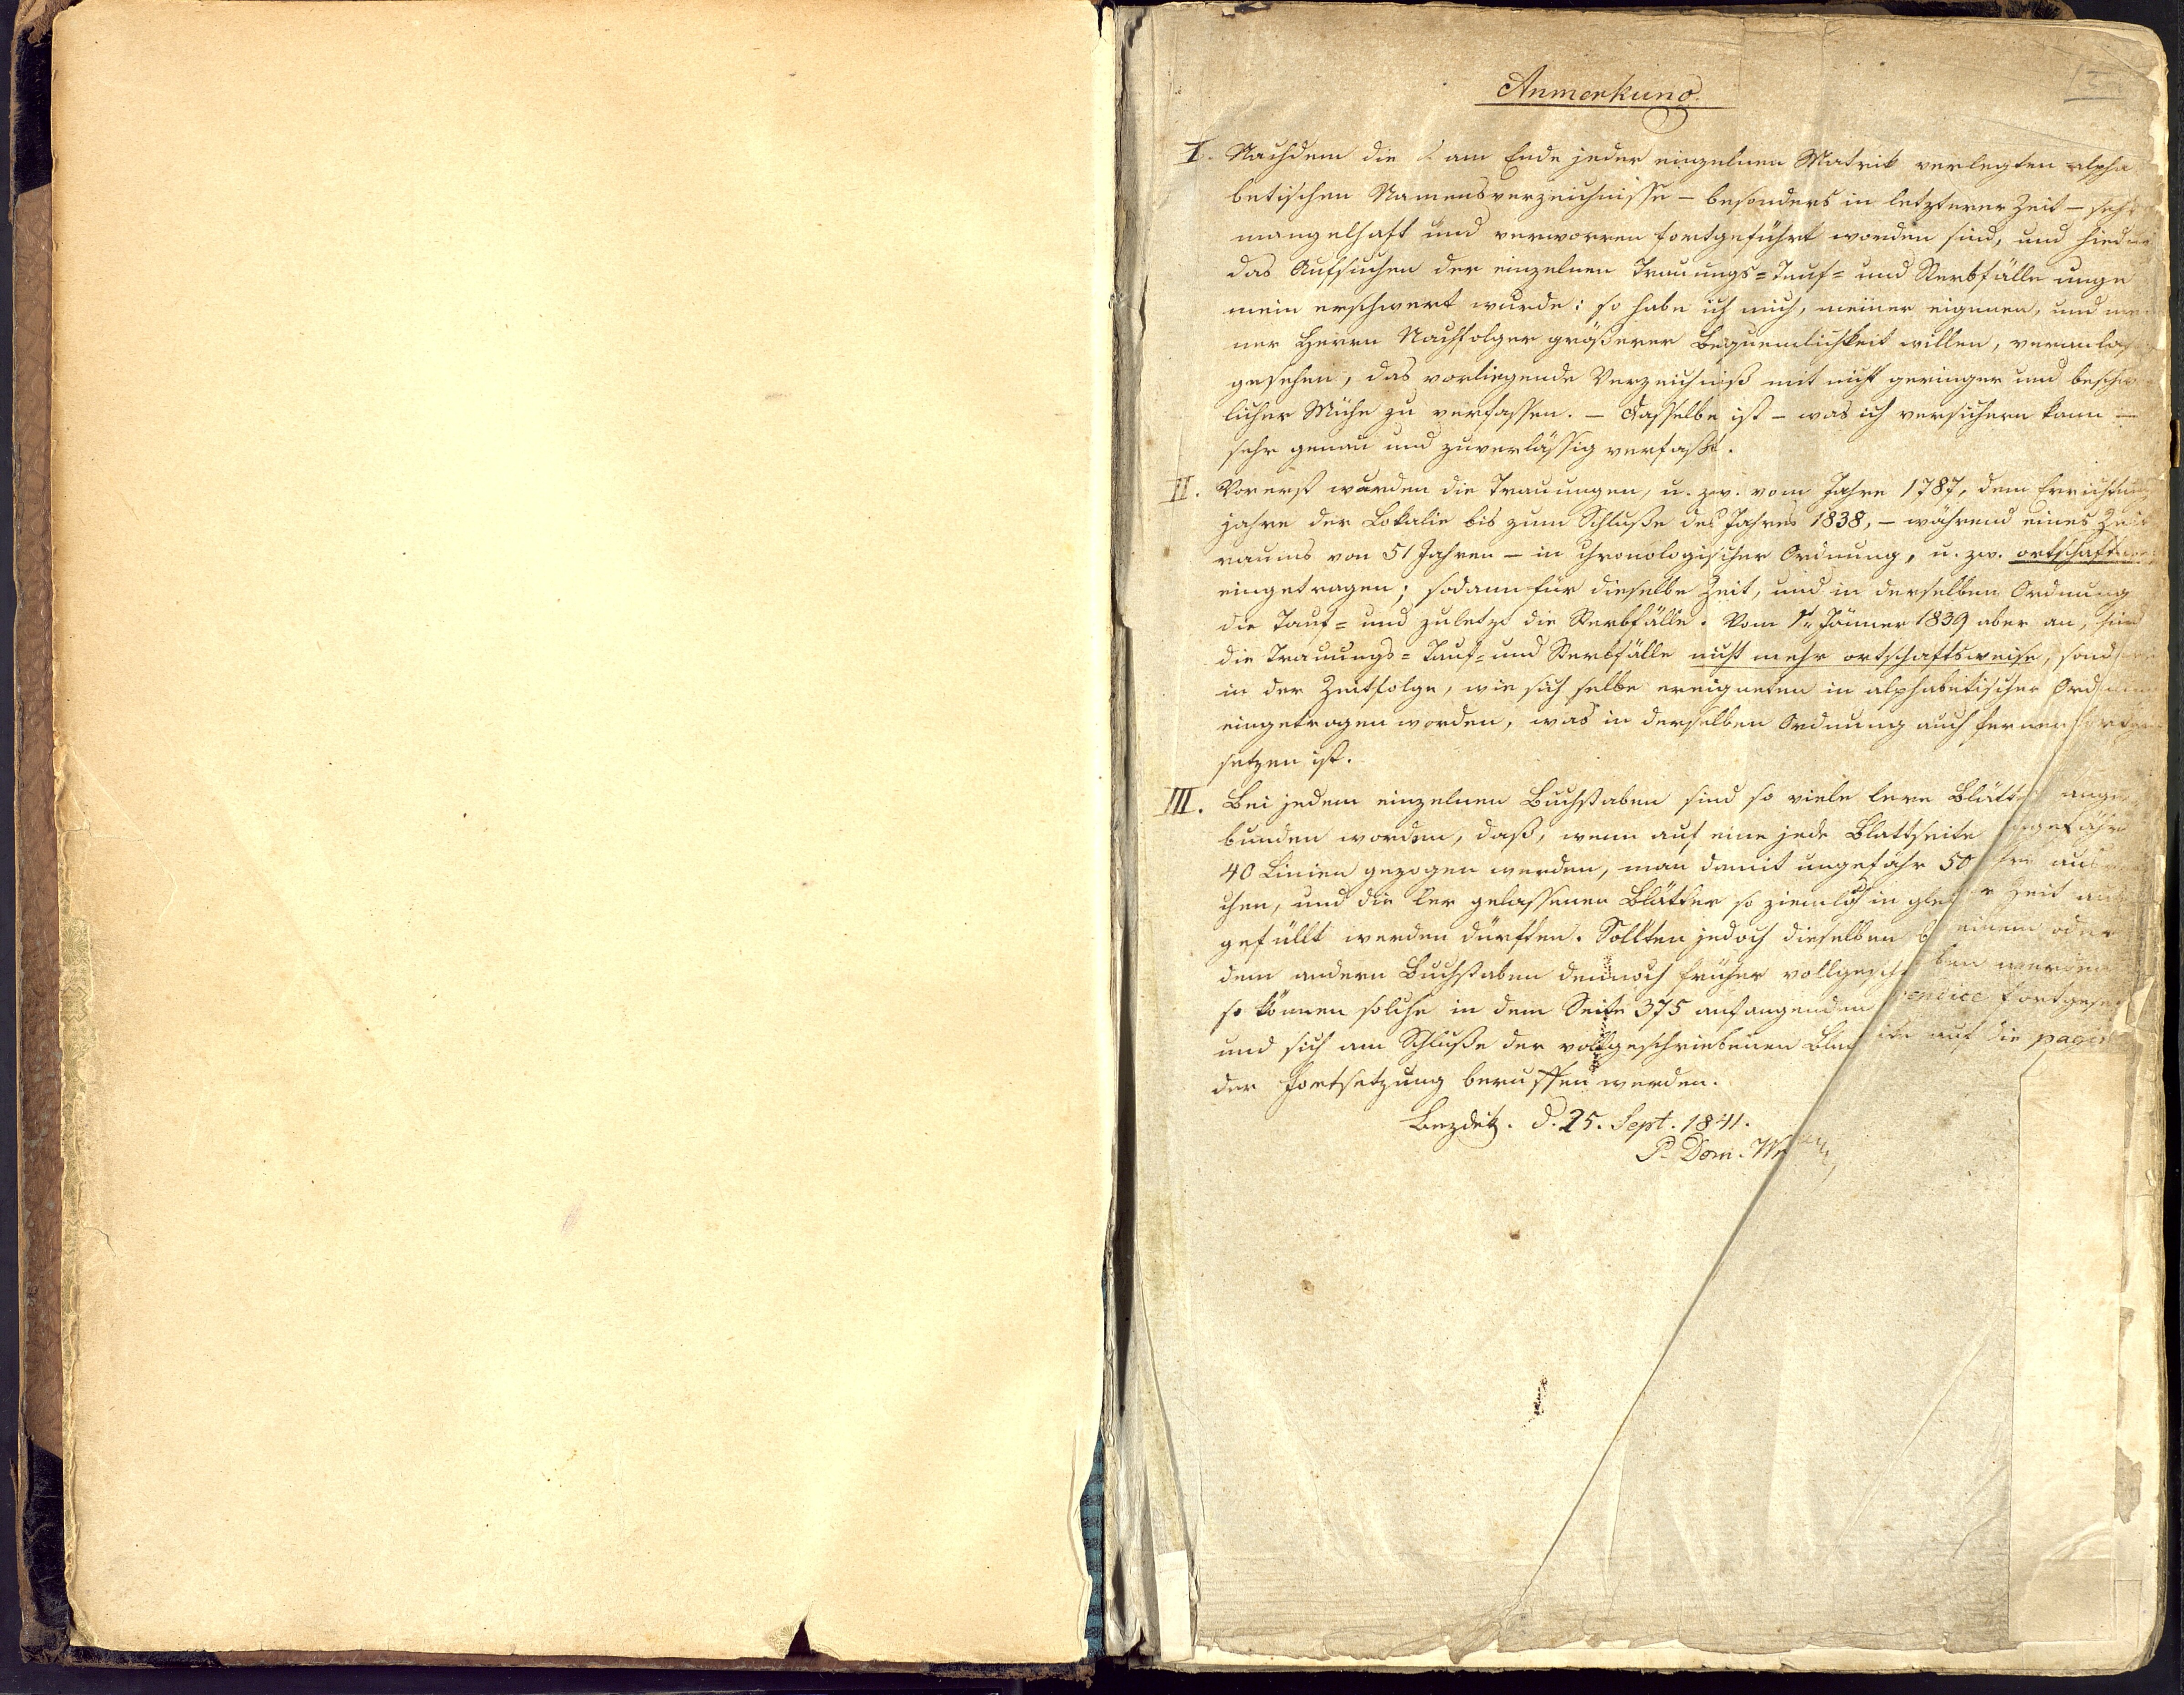 Anmerkung.
I. Nachdem die am Ende jeder einzelnen Matrik verlegten alpha
betischen Namensverzeichnisse – besonders in letzterer Zeit – sehr
mangelhaft und verworren fortgeführt worden sind, und hiedurch
das Aufsuchen der einzelnen Trauungs= Tauf= und Sterbfälle unge
mein erschwert wurde: so habe ich mich, meiner eigenen, und mei
ner Herrn Nachfolger größerer Bequemlichkeit willen, veranlaßt
gesehen, das vorliegende Verzeichniß mit nicht geringer und beschwer
licher Mühe zu verfassen. – Dasselbe ist – was ich versichern kann –
sehr genau und zuverlässig verfaßt.
II. Vorerst wurden die Trauungen, u. zw. vom Jahre 1787, dem Errichtungs
jahre der Lokalie bis zum Schluße des Jahres 1838, – während eines Zeit
raums von 51 Jahren – in chronologischer Ordnung, u. zw. ortschaftsweise
eingetragen; sodann für dieselbe Zeit, und in derselben Ordnung
die Tauf= und zuletzt die Sterbfälle. Vom 1t Jänner 1839 aber an, sind
die Trauungs= Tauf= und Sterbfälle nicht mehr ortschaftsweise, sondern
in der Zeitfolge, wie sich selbe ereigneten in alphabetischer Ordnung
eingetragen worden, was in derselben Ordnung auch ferner
setzen ist.
III. Bei jedem einzelnen Buchstaben sind so viele lere Blätter ange
bunden worden, daß, wenn auf eine jede Blattseite ungefähr
40 Linien gezogen werden, man damit ungefähr 50
chen, und die ler gelassenen Blätter so ziemlich in gleicher Zeit aus
gefüllt werden dürften. Sollten jedoch dieselben einem oder
dem andern Buchstaben dennoch früher vollgeschrieben werden
so können solche in dem Seite 375 anfangenden Appendice fortgesetzt
und sich am Schluße der vollgeschriebenen Blattseite auf die pagina
der Fortsetzung beruffen werden.
Bezdietz. d. 25. Sept. 1841.
P. Dom.